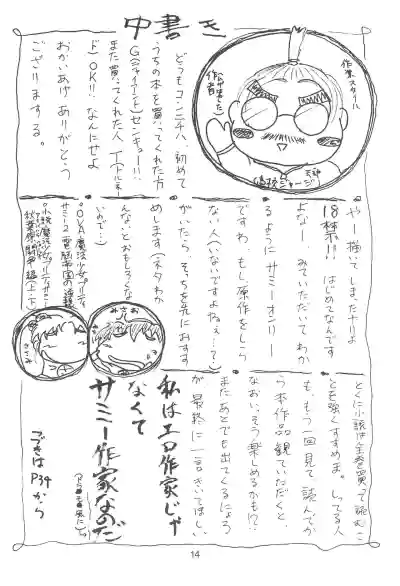 中書き
作業スタイル
作者
偽校ジャージ
どうもコンニチハ、初めて
うちの本を買ってくれた方
G(ジャイアント)センキュー!!
また買ってくれた人
ド)OK!! なんにせよ
おかいあげありがとう
ございまする。
やー描いてしまったなりよ
18禁!! はじめてなんです
よなー。みていただいてわか
るようにサミーオンリー
ですわ。もし原作をしら
ない人(いないですよねぇ…?)
がいたら、そっちを先におすす
めします(ネタわか
んないとおもしろくな
いので…)
OVA魔法少女プリティ
サミー2
小説魔法少女プリティサミー
秋葉原
編(上・下)
みさお
とくに小説は全巻買って読むこ
とを強くすすめま。しってる人
も、もう一回見て読んでか
ら本作品観ていただくと、
なおいっそう楽しめるかも!?
またあとでも出てくるにょろ
が最終に一言きいてほしい、
私はエロ作家じゃ
なくて
サミー作家なのだ
つづきは
P34から
14